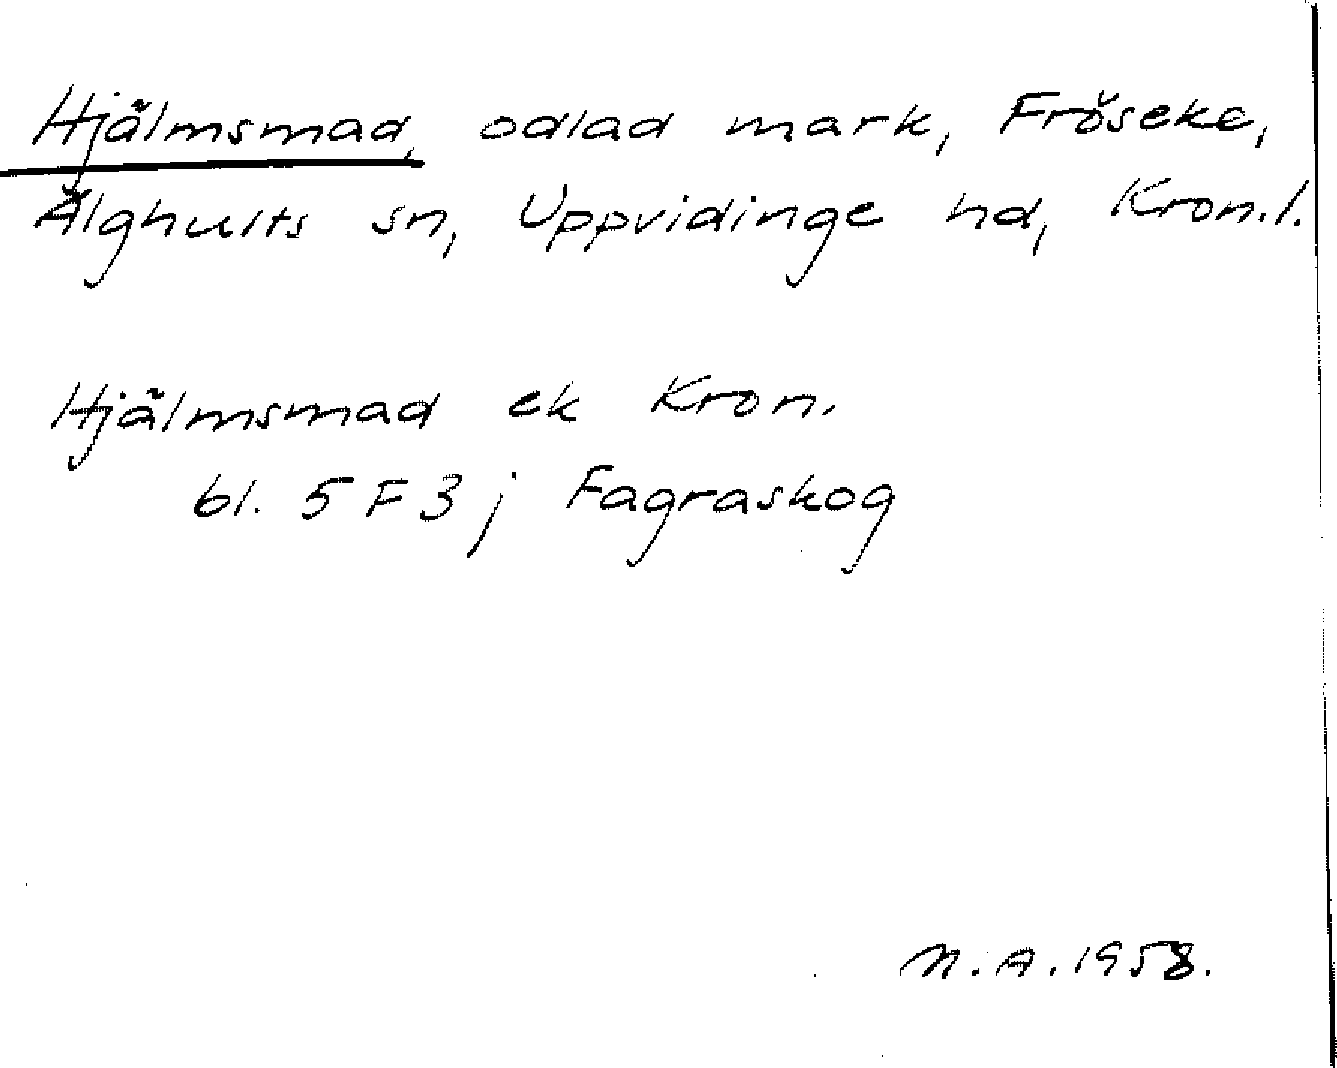 Hjälmsmad, odlad mark, Fröseke,
Älghults sn, Uppvidinge hd, Kron.l.
Hjälmsmad ek Kron.
bl. 5 F 3 j Fagraskog
N.A. 1958.